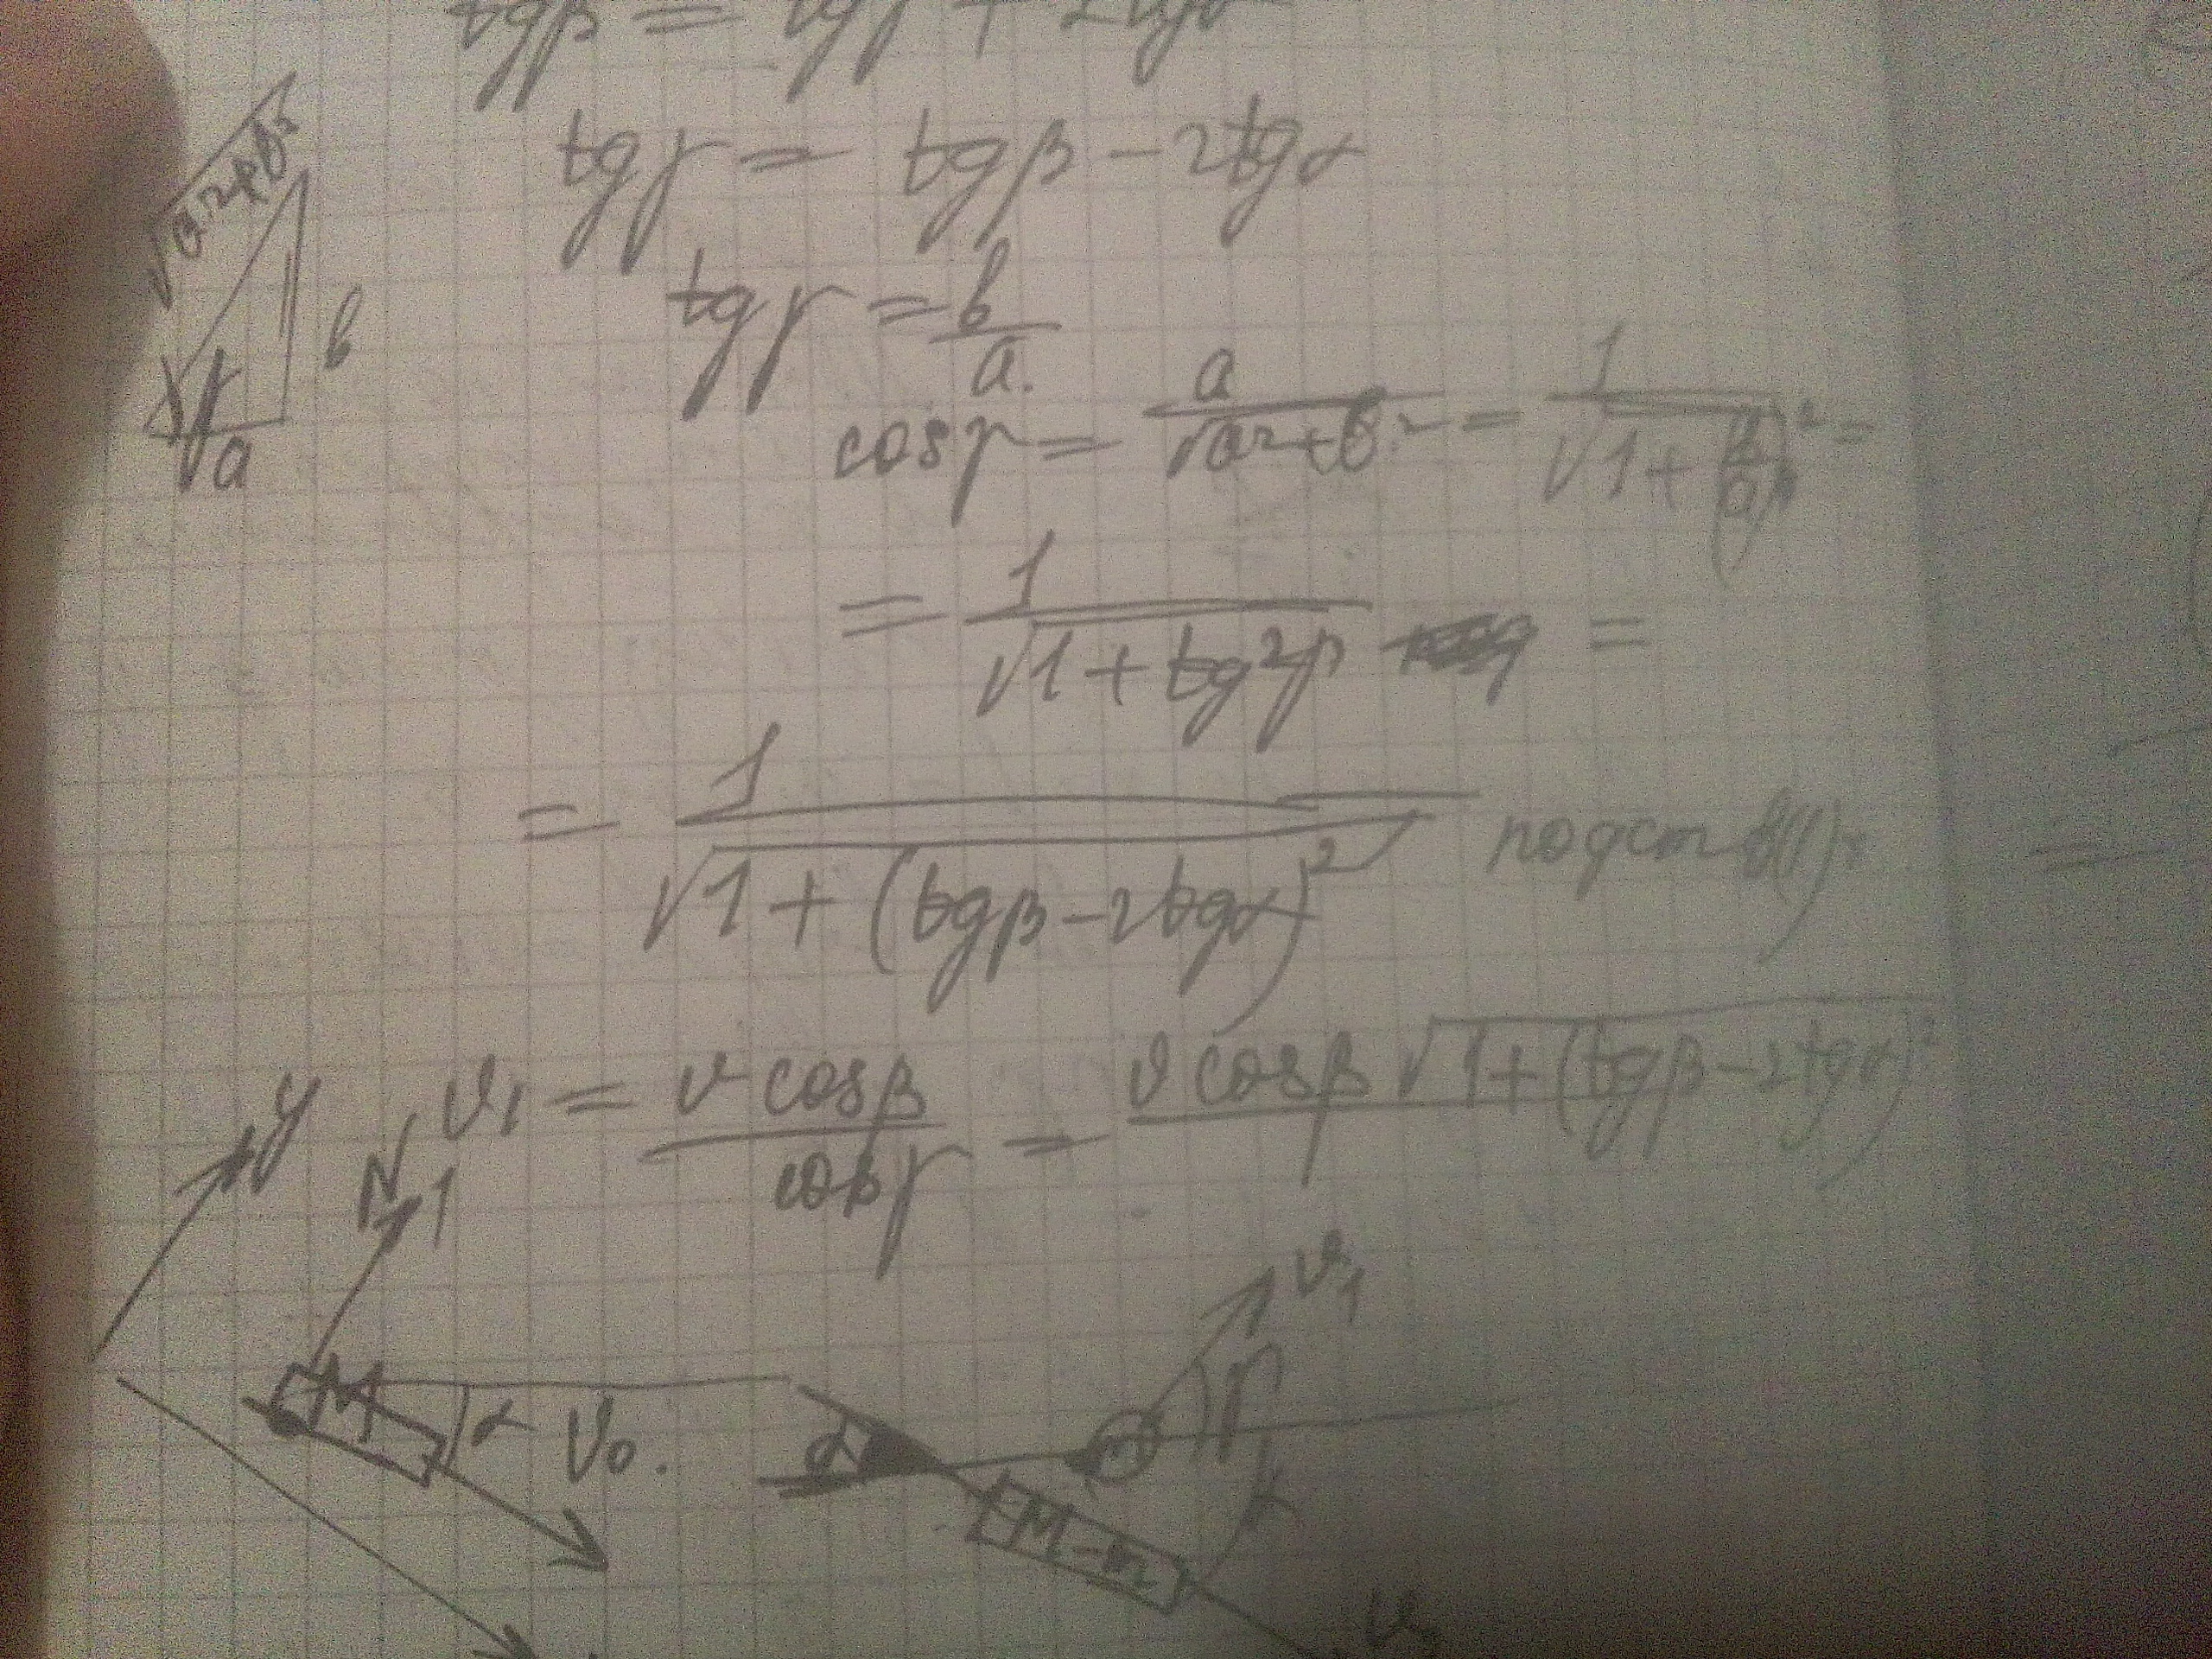 tgβ = tgγ + 2tgα
tgγ = tgβ - 2tgα
√a²+b²
b
γ
a
tgγ = b/a.
cosγ = a/√a²+b² = 1/√1+(b/a)² =
= 1/√1+tg²γ =
= 1/√1+(tgβ-2tgα)² подст в(1).
v₁ = v cosβ/cosγ = v cosβ √1+(tgβ-2tgα)²
y
N₁
M
α
v₀.
α
m
v₁
γ
α
M-m